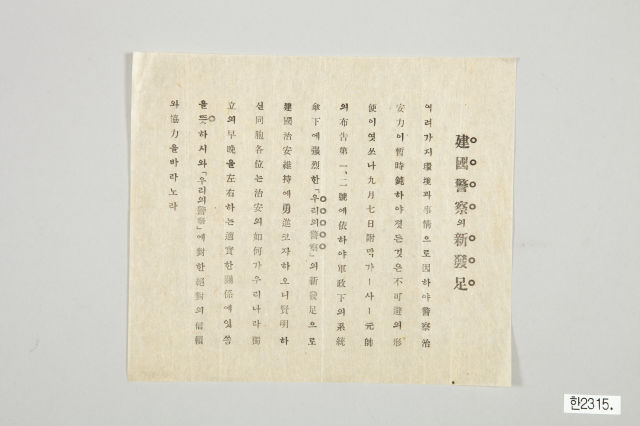 建國警察의新發足
여려가지環境과事情으로因하야警察治
安力이暫時鈍하야졋든것은不可避의形
便이엿쓰나九月七日附막가ー사ー元帥
의布告第一、二號에依하야軍政下의系統
傘下에强烈한「우리의警察」의新發足으로
建國治安維持에勇進코자하오니賢明하
신同胞各位는治安의如何가우리나라獨
立의早晩을左右하는適實한關係에잇슴
을 하시와「우리의警察」에對한絕對의信賴
와協力을바라노라
한2315.